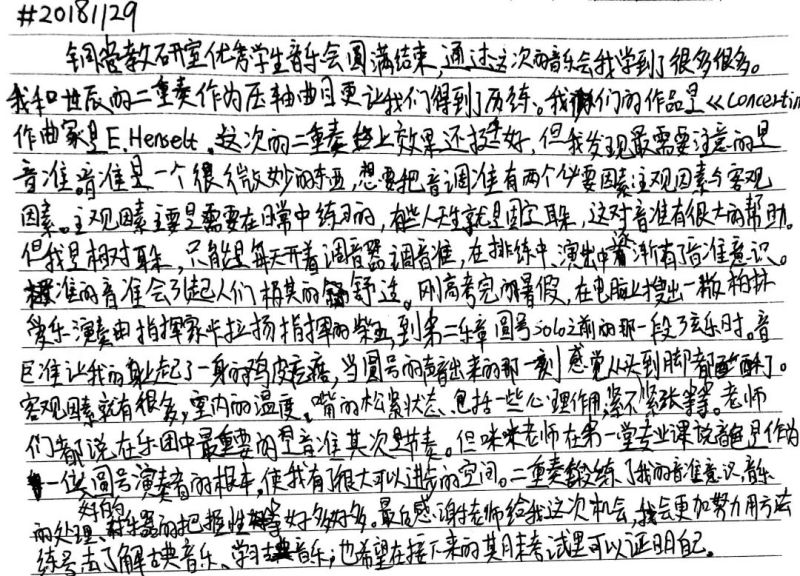 #20181129
铜管教研室优秀学生音乐会圆满结束,通过这次的音乐会我学到了很多很多。
我和世辰的二重奏作为压轴曲目更让我们得到了历练。我们的作品是《Concertin
作曲家是E.Henselt,这次的二重奏台上效果还挺好,但我发现最需要注意的是
音准。音准是一个很微妙的东西,想要把音调准有两个必要因素主观因素与客观
因素。主观因素主要是需要在日常中练习的,有些人天生就是固定耳朵,这对音准有很大的帮助。
但我是相对耳朵,只能是每天开着调音器调音准,在排练中、演出中逐渐有了音准意识。
准的音准会引起人们极其的舒适。刚高考完的暑假,在电脑上搜出一版柏林
爱乐演奏由指挥家卡拉扬指挥的柴五,到第二乐章圆号solo之前的那一段弦乐时。音
巨准让我的身上起了一身的鸡皮疙瘩,当圆号的声音出来的那一刻感觉从头到脚都酥了。
客观因素就有很多,室内的温度、嘴的松紧状态、包括一些心理作用,紧不紧张等等。老师
们都说在乐团中最重要的是音准其次是节奏。但咪咪老师在第一堂专业课说音色是作为
一位圆号演奏者的根本,使我有了很大可以进步的空间。二重奏锻练了我的音准意识,音乐
的处理、对乐器的把握性等好多好多。最后感谢老师给我这次机会,我会更加努力用方法
练号去了解古典音乐、学习古典音乐,也希望在接下来的期末考试里可以证明自己。